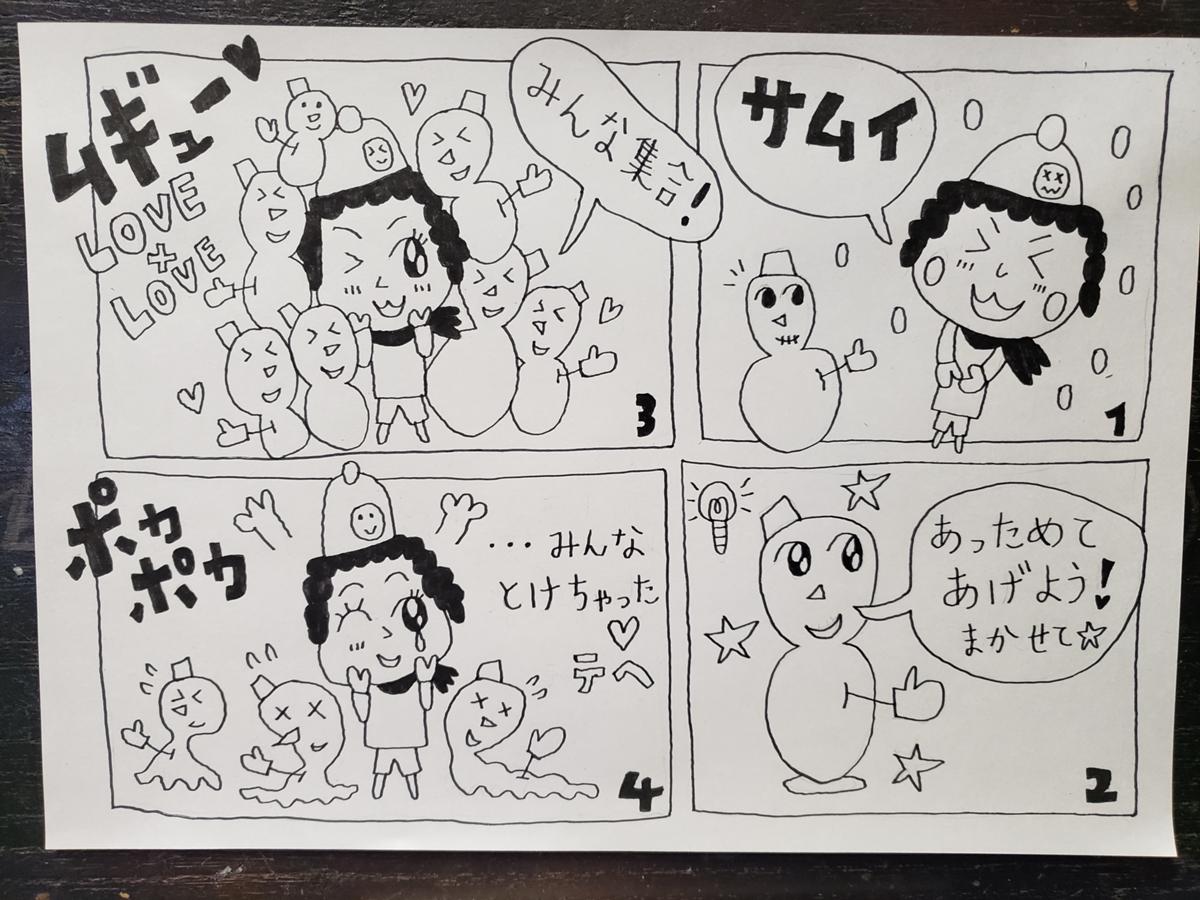 サムイ
1
あっためて
あげよう!
まかせて☆
2
みんな集合!
ムギュー♥
LOVE
+
LOVE
3
ポカ
ポカ
・・・みんな
とけちゃった
♡
テへ
4